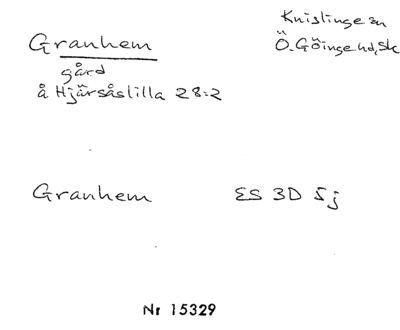 Granhem
gård
å Hjärsåslilla 28:2
Knislinge sn
Ö. Göinge hd, Sk
Granhem
ES 3D 5j
Nr 15329